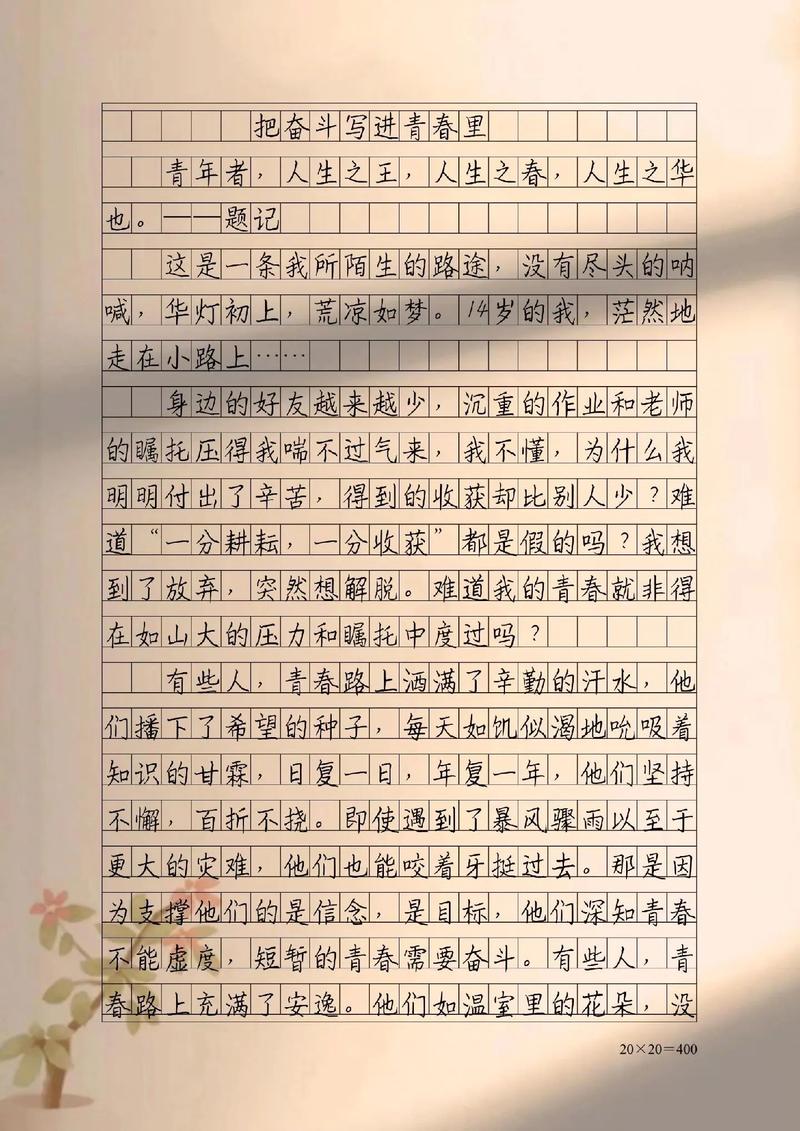 把奋斗写进青春里
青年者，人生之王，人生之春，人生之华
也。——题记
这是一条我所陌生的路途，没有尽头的呐
喊，华灯初上，荒凉如梦。14岁的我，茫然地
走在小路上……
身边的好友越来越少，沉重的作业和老师
的瞩托压得我喘不过气来，我不懂，为什么我
明明付出了辛苦，得到的收获却比别人少？难
道“一分耕耘，一分收获”都是假的吗？我想
到了放弃，突然想解脱。难道我的青春就非得
在如山大的压力和瞩托中度过吗？
有些人，青春路上洒满了辛勤的汗水，他
们播下了希望的种子，每天如饥似渴地吮吸着
知识的甘霖，日复一日，年复一年，他们坚持
不懈，百折不挠。即使遇到了暴风骤雨以至于
更大的灾难，他们也能咬着牙挺过去。那是因
为支撑他们的是信念，是目标，他们深知青春
不能虚度，短暂的青春需要奋斗。有些人，青
春路上充满了安逸。他们如温室里的花朵，没
20×20=400